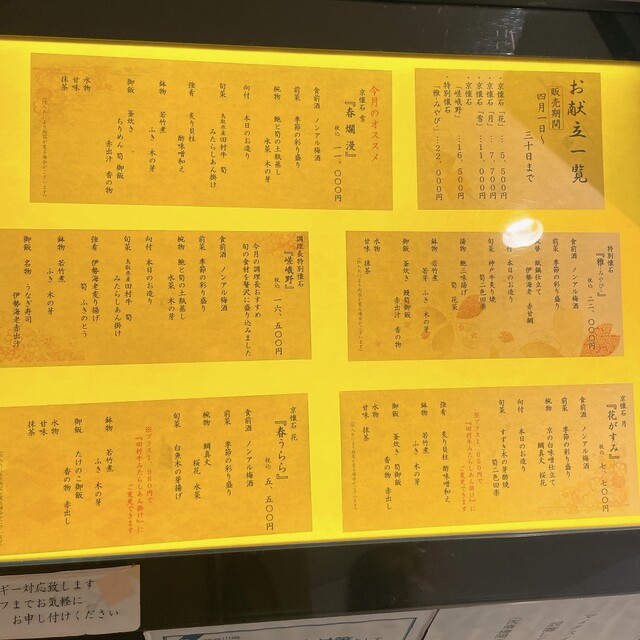 お献立一覧
販売期間
四月一日〜
三十日まで
・京懐石「花」…5,500円
・京懐石「月」…7,700円
・京懐石「雪」…11,000円
「嵯峨野」…16,500円
・特別懐石
「雅・みやび」…22,000円
今月のオススメ
京懐石 雪
『春爛漫』
税込 一一、〇〇〇円
食前酒 ノンアル梅酒
前菜 季節の彩り盛り
椀物 鮑と筍の土瓶蒸し
水菜 木の芽
向付 本日のお造り
旬菜 鳥取県産田村牛 筍
みたらしあん掛け
強肴 炙り貝柱 酢味噌和え
鉢物 若竹煮
ふき 木の芽
御飯 釜炊き
ちりめん 筍 御飯
赤出汁 香の物
水物
甘味
抹茶
特別懐石
『雅・みやび』
税込 二二、〇〇〇円
食前酒 ノンアル梅酒
前菜 季節の彩り盛り
紙鍋仕立て
伊勢海老 赤甘鯛
本日のお造り
旬菜 神戸牛炙り焼
筍二色田楽
湯物 鮑三味揚げ
筍 花菜
鉢物 若竹煮
若芽 ふき 木の芽
御飯 釜炊き 鰻筍御飯
赤出汁 香の物
水物
甘味 抹茶
調理長特別懐石
『嵯峨野』
税込 一六、五〇〇円
今月の調理長おすすめ
旬の食材を贅沢に盛り込みました
食前酒 ノンアル梅酒
前菜 季節の彩り盛り
椀物 鮑と筍の土瓶蒸し
水菜 木の芽
向付 本日のお造り
旬菜 鳥取県産田村牛 筍
みたらしあん掛け
強肴 伊勢海老炙り揚げ
筍 ふきのとう
鉢物 若竹煮
ふき 木の芽
御飯 名物 うなぎ寿司
伊勢海老赤出汁
京懐石 月
『花がすみ』
税込 七、七〇〇円
食前酒 ノンアル梅酒
前菜 季節の彩り盛り
椀物 京の白味噌仕立て
鯛真丈 桜花
向付 本日のお造り
旬菜 すずき木の芽酢焼
筍二色田楽
※プラス1,680円で
『田村牛みたらしあん掛け』に
ご変更できます
強肴 炙り貝柱 酢味噌和え
鉢物 若竹煮
ふき 木の芽
御飯 釜炊き 筍御飯
香の物 赤出し
水物
甘味
抹茶
京懐石 花
『春うらら』
税込 五、五〇〇円
食前酒 ノンアル梅酒
前菜 季節の彩り盛り
椀物 鯛真丈
桜花 水菜
旬菜 白魚木の芽揚げ
※プラス1,980円で
『田村牛みたらしあん掛け』に
ご変更できます
鉢物 若竹煮
ふき 木の芽
御飯 たけのこ御飯
香の物 赤出し
水物
甘味
抹茶
ギー対応致します
フまでお気軽に
お申し付けください